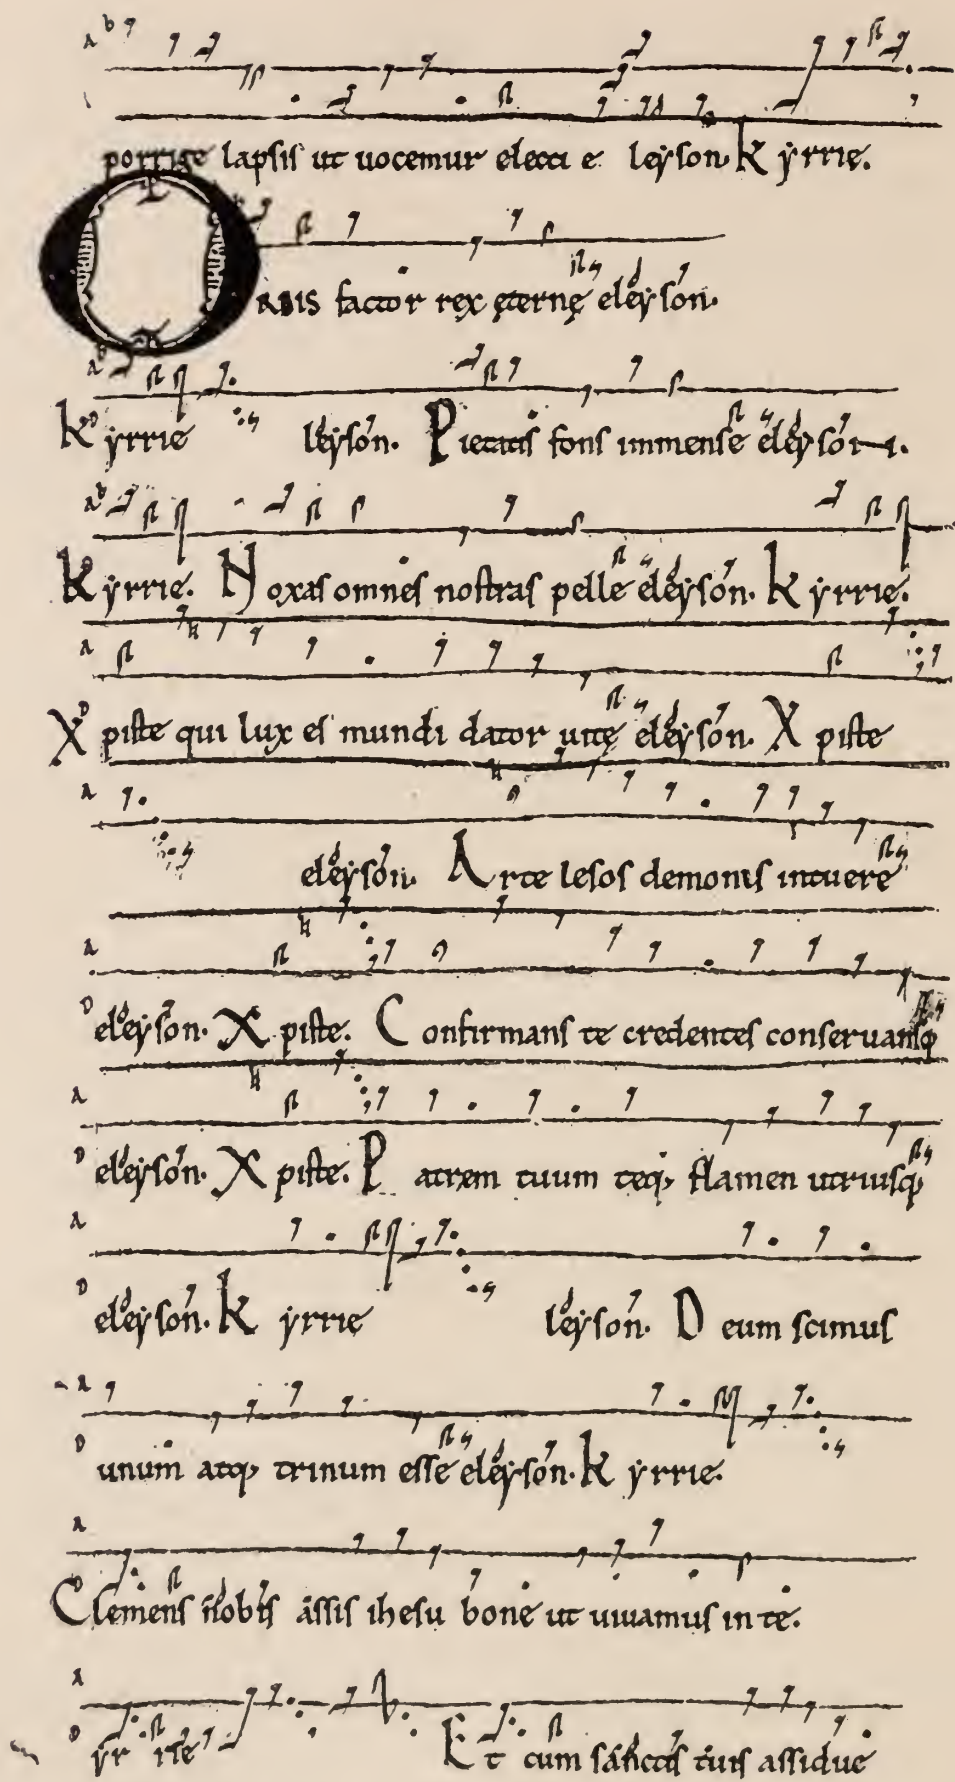 porrige lapsis ut uocemur electi e leẏson. K ẏrrie.
ORBIS factor rex ęternę eleẏson.
Kẏrrie leẏson. Pietatis fons immense eleẏson.
Kẏrrie. Noxas omnes nostras pelle eleẏson. K ẏrrie.
Xpiste qui lux es mundi dator uitę eleẏson. X piste
eleẏson. Arte lesos demonis intuere
eleẏson. X piste. Confirmans te credentes conseruansq;
eleẏson. X piste. Patrem tuum teq; flamen utriusq;
eleẏson. K ẏrrie leẏson. Deum scimus
unum atq; trinum esse eleẏson. K ẏrrie.
Clemens nobis assis ihesu bone ut uiuamus in te.
ẏr rie Et cum sanctis tuis assidue